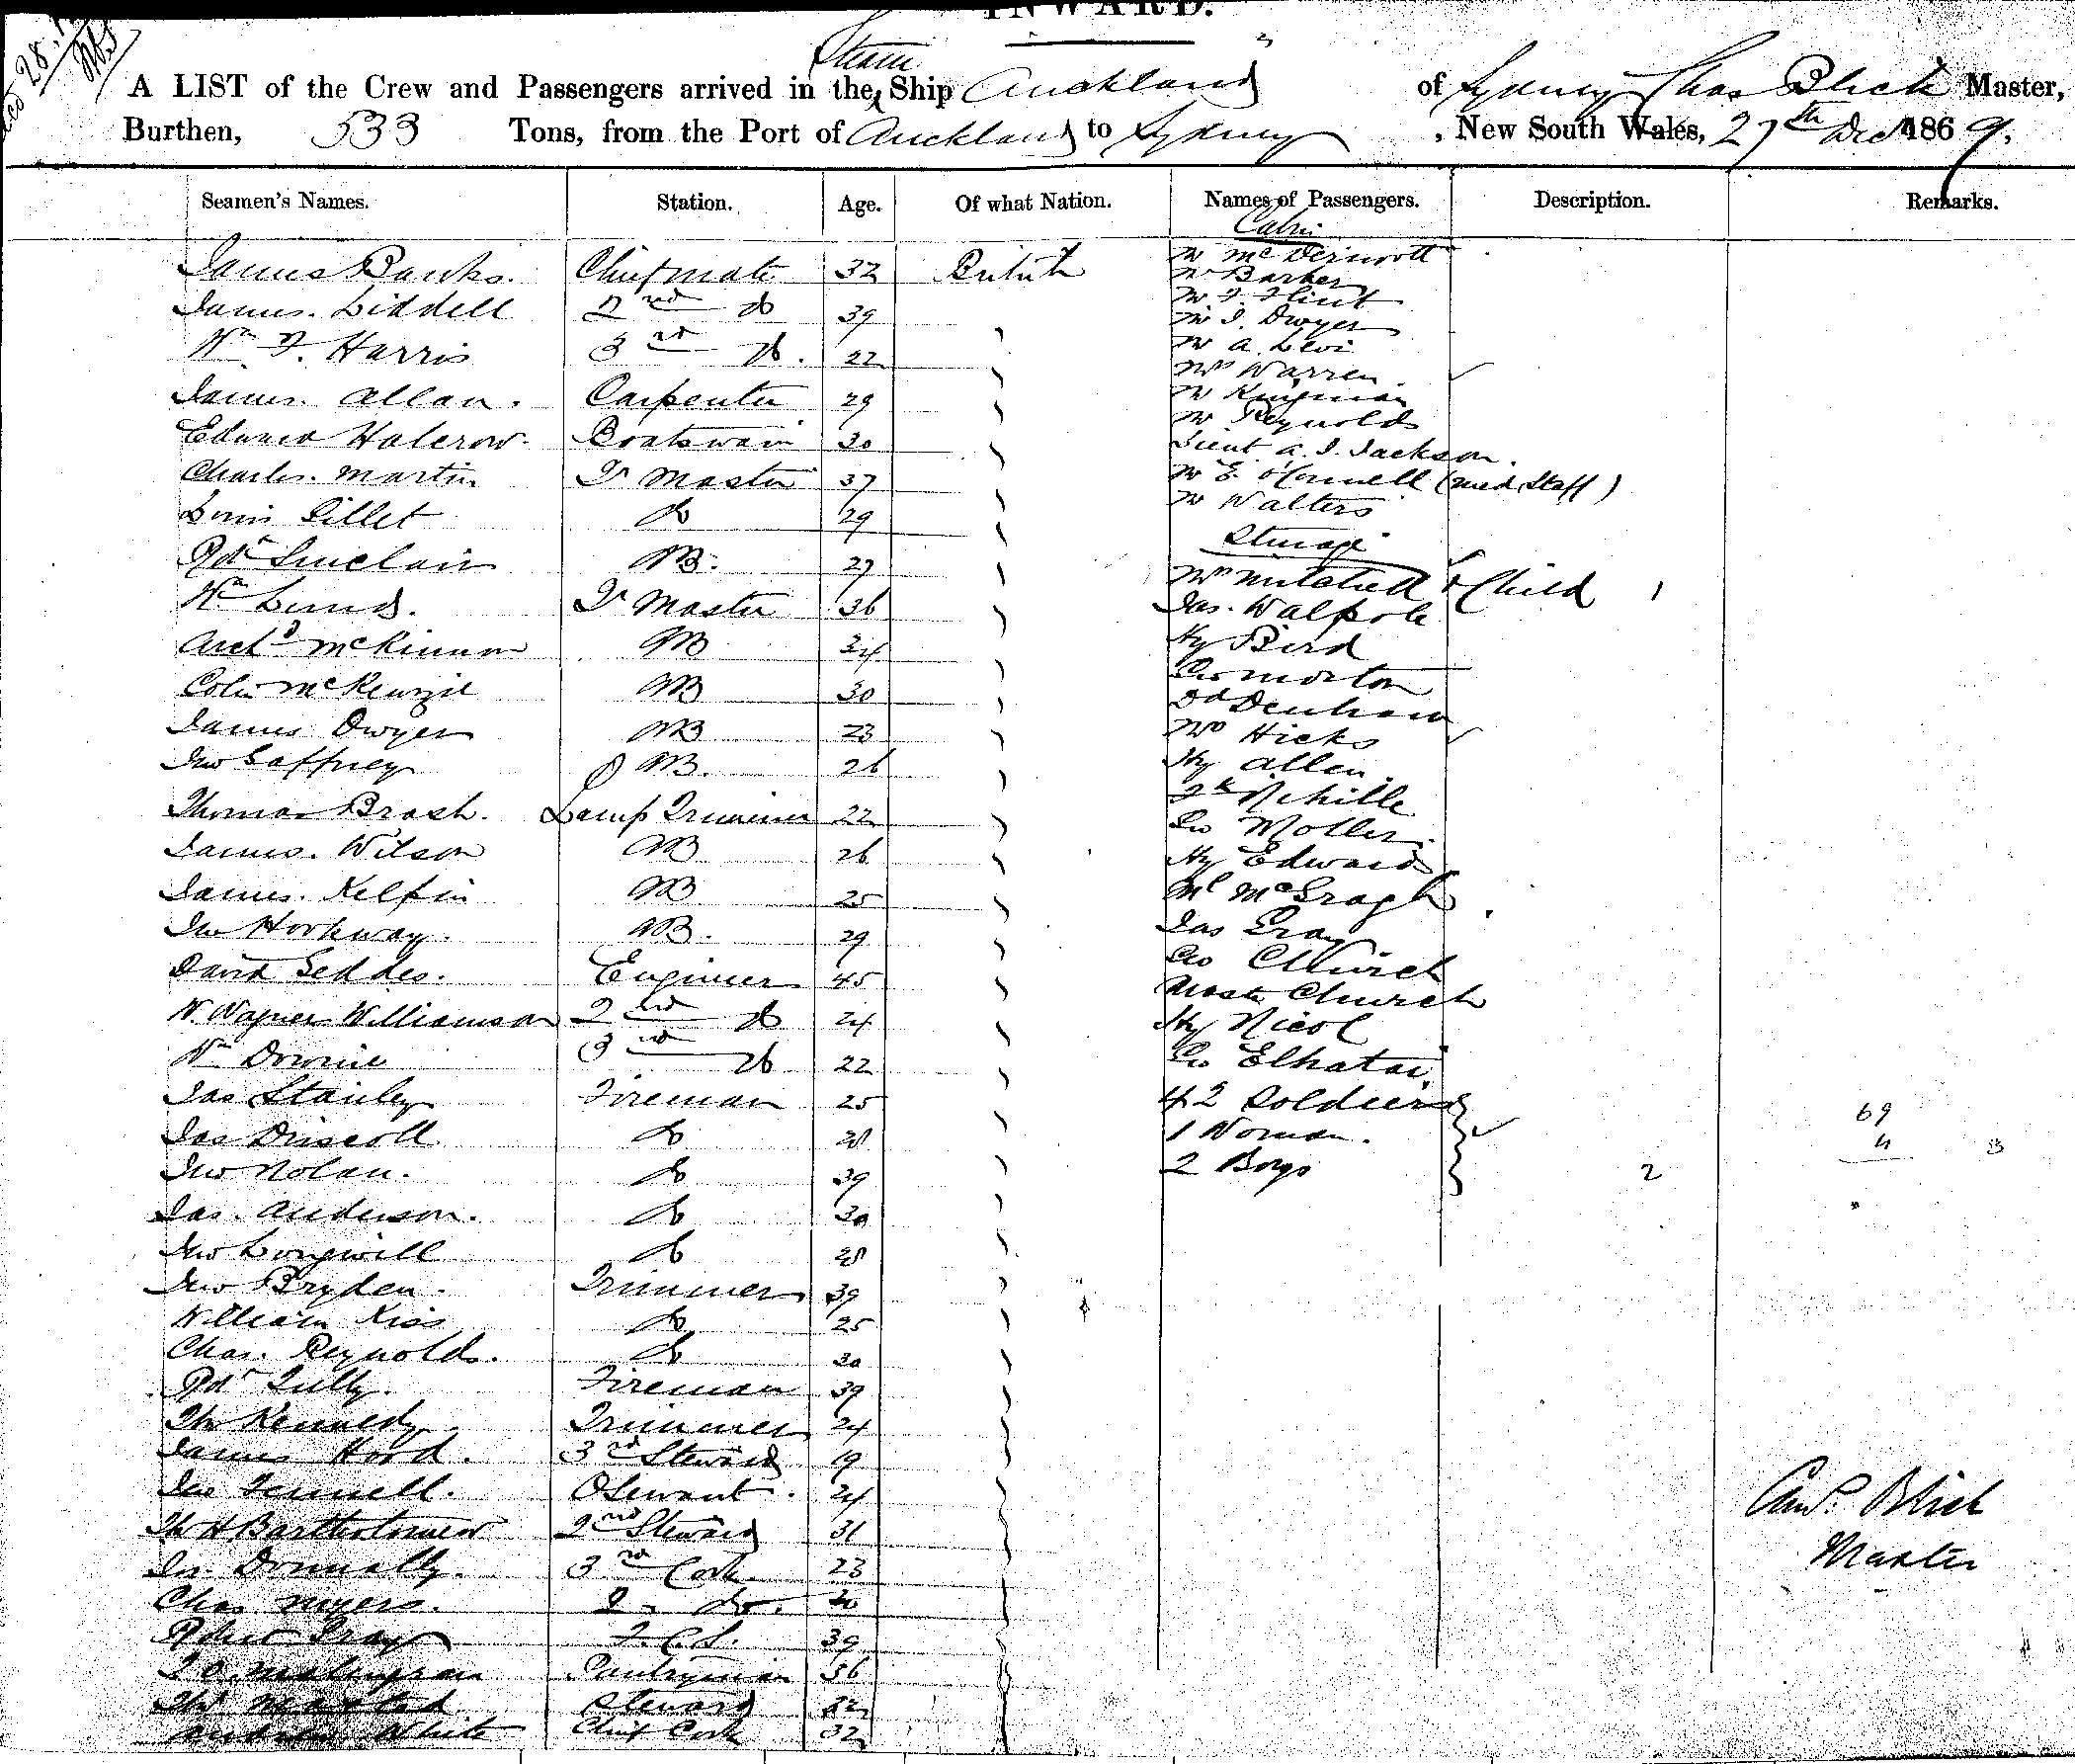 INWARD.
A LIST of the Crew and Passengers arrived in the Steam Ship Auckland of Sydney Chas Blick Master,
Burthen, 533 Tons, from the Port of Auckland to Sydney, New South Wales, 27th Decr 1869.
Seamen's Names. Station. Age. Of what Nation. Names of Passengers. Description. Remarks.
Cabin
James Banks. Chief mate 32 British Mr McDermott
Mr Barker
James Liddell 2nd do 39 Mr F. Flint
Mr J. Dwyer
Wm F. Harris 3rd do. 22 Mr A. Levi
Mrs Warren.
James Allan. Carpenter 29 Mr Kingman
Mr Reynolds
Edward Halcrow. Boatswain 30 Lieut A. J. Jackson.
Charles Martin Qr Master 37 Mr E. O'Connell (Med Staff)
Louis Gillet do 29 Mr Walters
Steerage
Rdt Sinclair AB. 27 Mrs Mitchell & Child 1
Wm Lund. Qr Master 36 Jas. Walpole
Archd McKinnon AB 34 Hy Bird
Colin McKenzie AB 30 Geo Morton
Dd Denham
James Dwyer AB 23 Mrs Hicks
Jno Gaffney AB. 26 Hy Allen.
Thomas Brash. Lamp Trimmer 22 Geo Moller.
James. Wilson AB 26 Hy Edwards
James. Kelpin AB 25 Ml McGragh
Jno Hookway. AB. 29 Jas Gray
David Geddes. Engineer 45 Geo Church
Master Church
W. Wagner Williamson 2nd do 24 Hy Nicol
Wm Downie 3rd do 22 Geo
Jas Stanley Fireman 25 42 Soldiers 69
Jas Driscoll. do 28 1 Woman. 4
Jno Nolan. do 39 2 Boys 2
Jas. Anderson. do 30
Jno Longwill do 28
Jno Bryden. Trimmer 39
William Kiss do 25
Chas. Reynolds. do 30
Rdt Tully. Fireman 39
Thos Kennedy Trimmer 24
James Hood. 3rd Steward 19
Jas Fennell. 24
Thos H Bartholomew 2nd Steward 31
Jas. Donnally. 3rd Cook 23
Chas Myers. 2 do.
Robert Gray F.C.S. 39
Pantryman 36
Steward
Andrew White Chief Cook 32
Blick
Master